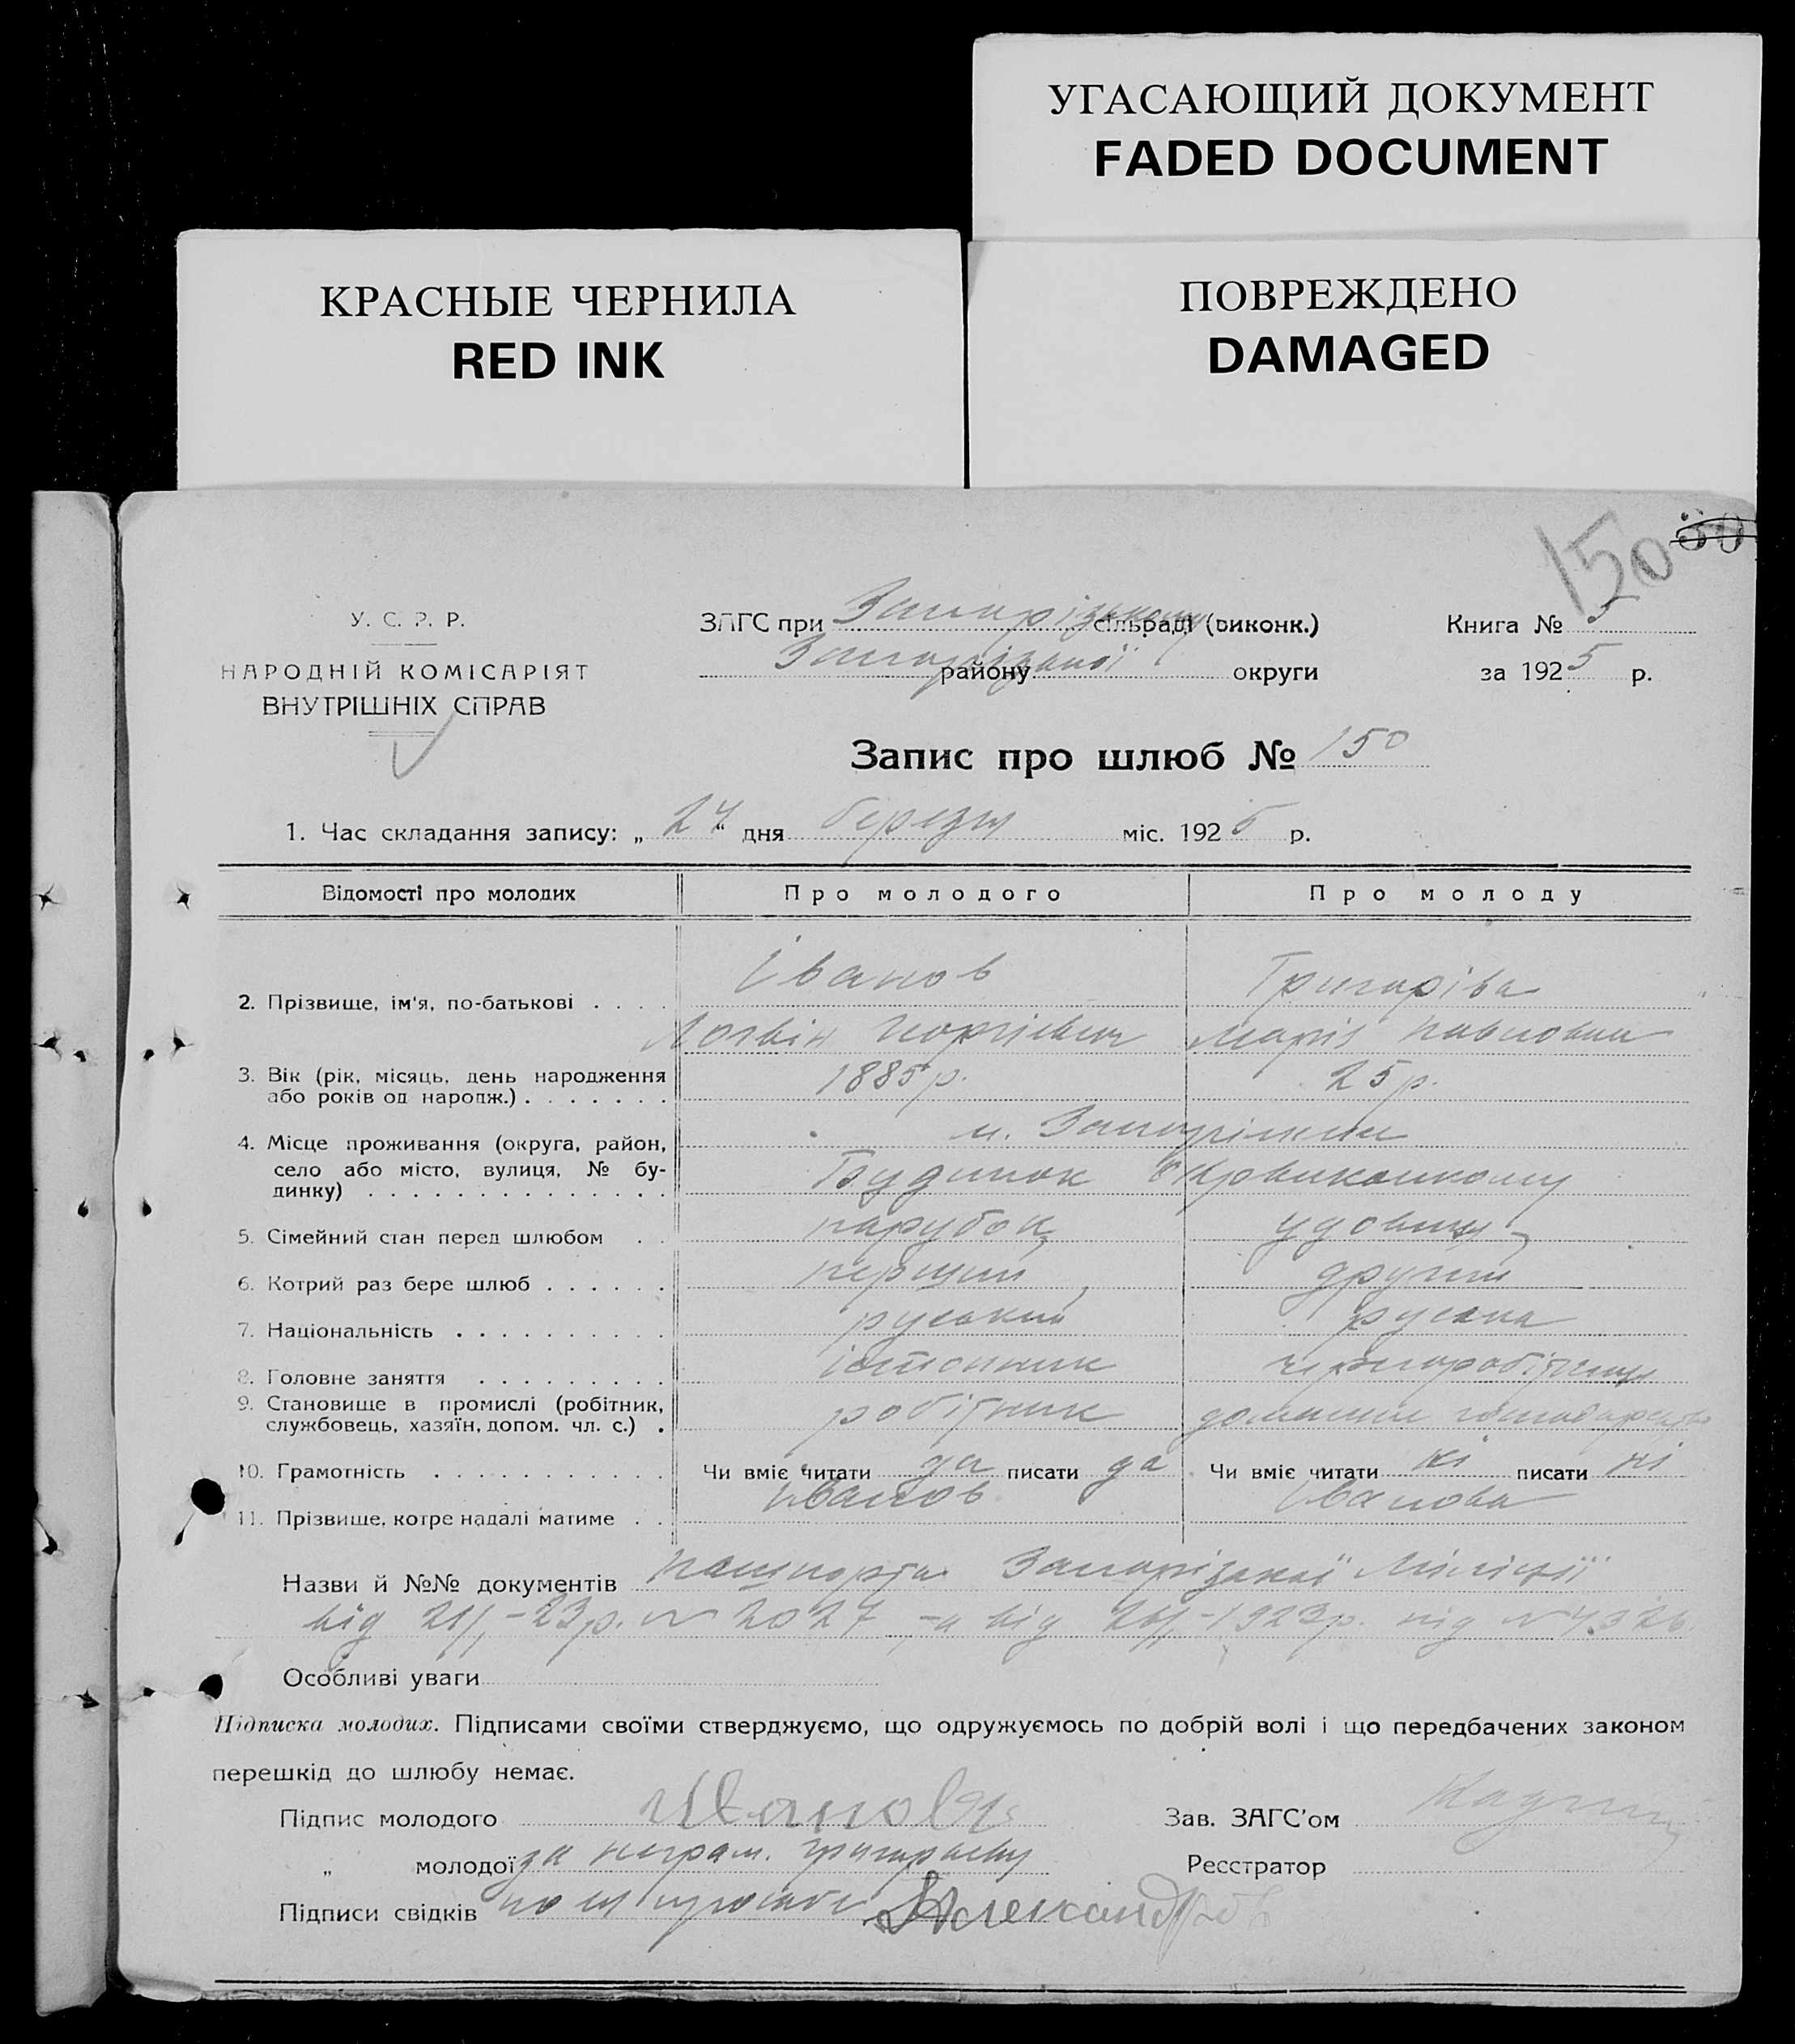 УГАСАЮЩИЙ ДОКУМЕНТ
FADED DOCUMENT
КРАСНЫЕ ЧЕРНИЛА
RED INK
ПОВРЕЖДЕНО
DAMAGED
150 30
У. С. Р. Р.
НАРОДНІЙ КОМІСАРІЯТ
ВНУТРІШНІХ СПРАВ
ЗАГС при Запорізькому сільраді (виконк.)
району Запорізької округи
Книга № 5
за 1925 р.
Запис про шлюб № 150
1. Час складання запису: „ 24 “ дня березня міс. 1925 р.
Відомості про молодих Про молодого Про молоду
Іванов Григорієва
2. Прізвище, ім'я, по-батькові . . . .
Логвін Марія Павловна
3. Вік (рік, місяць, день народження або років од народж.) . . . . . . . 1885 р. 25 р.
4. Місце проживання (округа, район, село або місто, вулиця, № будинку) . . . . . . . . . . . . . . м. Запоріжжя
Будинок Окрвиконкому
5. Сімейний стан перед шлюбом . . парубок удовиця
6. Котрий раз бере шлюб . . . . . . перший другий
7. Національність . . . . . . . . . . руський руська
8. Головне заняття . . . . . . . . . істопник чорноробітниця
9. Становище в промислі (робітник, службовець, хазяїн, допом. чл. с.) . робітник домашнє господарство
10. Грамотність . . . . . . . . . . . Чи вміє читати да писати да Чи вміє читати ні писати ні
11. Прізвище, котре надалі матиме . . Іванов Іванова
Назви й №№ документів пашпорта Запорізької Міліції
від 21/ -23 р. № 2027 від 26/ -1923 р. під № 4326
Особливі уваги
Підписка молодих. Підписами своїми стверджуємо, що одружуємось по добрій волі і що передбачених законом
перешкід до шлюбу немає.
Підпис молодого Иванов Зав. ЗАГС'ом
„ молодої за неграм. Григорієву Реєстратор
Підписи свідків по її просьбі Александров